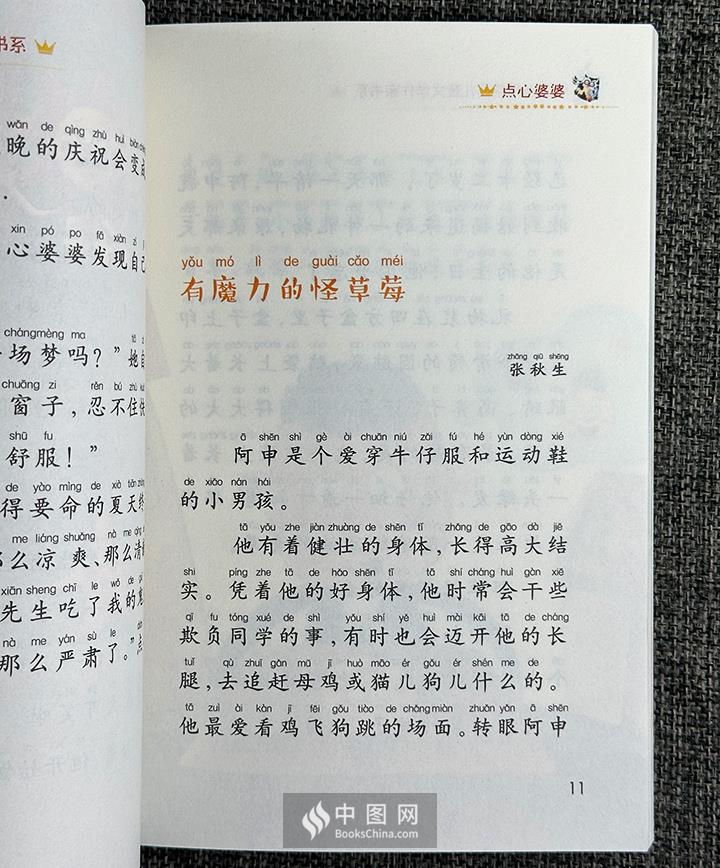 书系
wǎn de qìng zhù huì biàn chéng
晚的庆祝会变成
xin pó po fā xiàn zì
心婆婆发现自己
chángmèng ma tā
场梦吗?”她自
chuāng zi rěn bú zhù
窗子,忍不住
shū fu
舒服!”
de yào mìng de xià tiān
得要命的夏天终
me liáng shuǎng nà me qīng
么凉 爽、那么清
xiān sheng chī le wǒ de
先生吃了我的
nà me yán sù le diǎn
那么严肃了。”点
点心婆婆
yǒu mó lì de guài cǎo méi
有魔力的怪草莓
zhāng qiū shēng
张秋生
ā shēn shì gè ài chuān niú zǎi fú hé yùn dòng xié
阿申是个爱穿牛仔服和运动鞋
de xiǎo nán hái
的小男孩。
tā yǒu zhe jiàn zhuàng de shēn tǐ zhǎng de gāo dà jiē
他有着健壮的身体,长得高大结
shi píng zhe tā de hǎo shēn tǐ tā shí cháng huì gàn xiē
实。凭着他的好身体,他时常会干些
qī fu tóng xué de shì yǒu shí yě huì mài kāi tā de cháng
欺负同学的事,有时也会迈开他的长
tuǐ qù zhuī gǎn mǔ jī huò māo ér gǒu ér shén me de
腿,去追赶母鸡或猫儿狗儿什么的。
tā zuì ài kàn jī fēi gǒu tiào de chǎng miàn zhuǎn yǎn ā shēn
他最爱看鸡飞狗跳的场面。转眼阿申
11
中图网
BooksChina.com